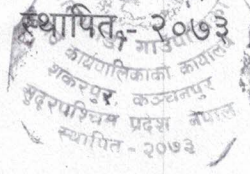 स्थापित - २०७३
गाउँपा
कार्यपालिकाको कार्यालय
शंकरपुर, कञ्चनपुर
सुदूरपश्चिम प्रदेश नेपाल
स्थापित - २०७३